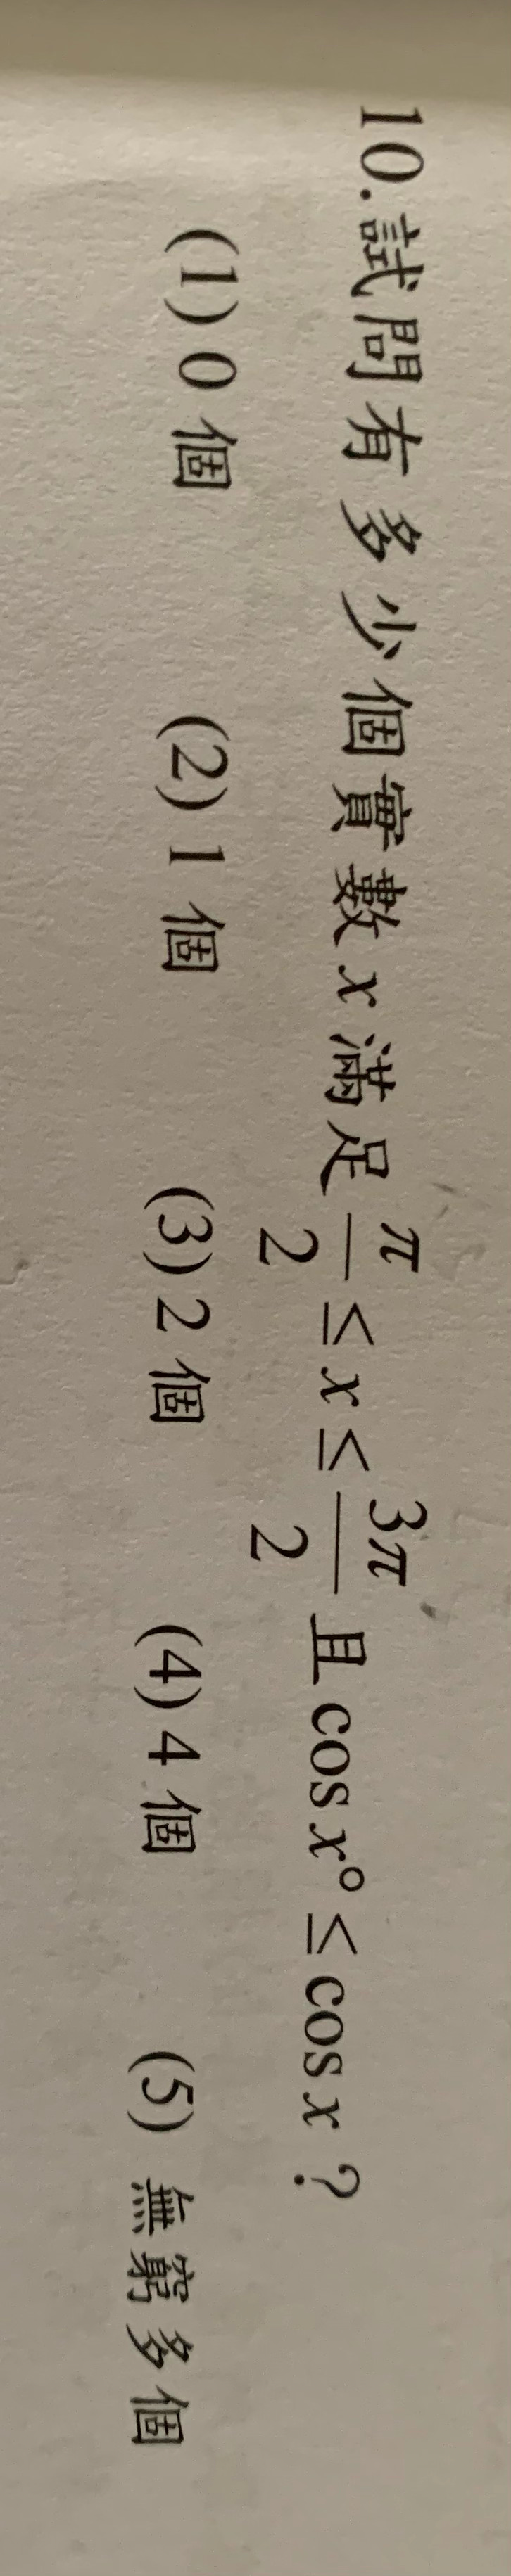 10.試問有多少個實數 x 滿足 π/2 ≤ x ≤ 3π/2 且 cos x° ≤ cos x？
(1) 0 個 (2) 1 個 (3) 2 個 (4) 4 個 (5) 無窮多個